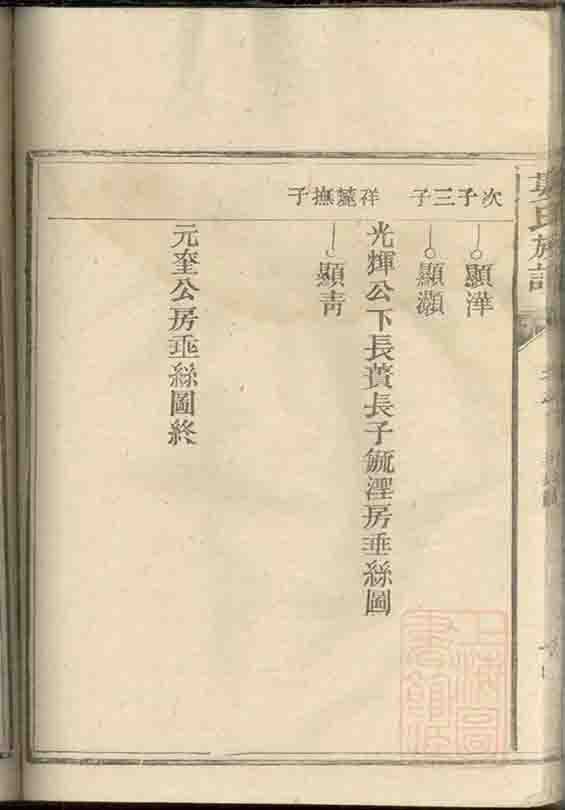 次子三子
顯潷
顯灝
光輝公下長蕢長子毓湮房垂絲圖
祥蘧撫子
顯青
元奎公房垂絲圖終
吳氏族譜
上海圖書館藏